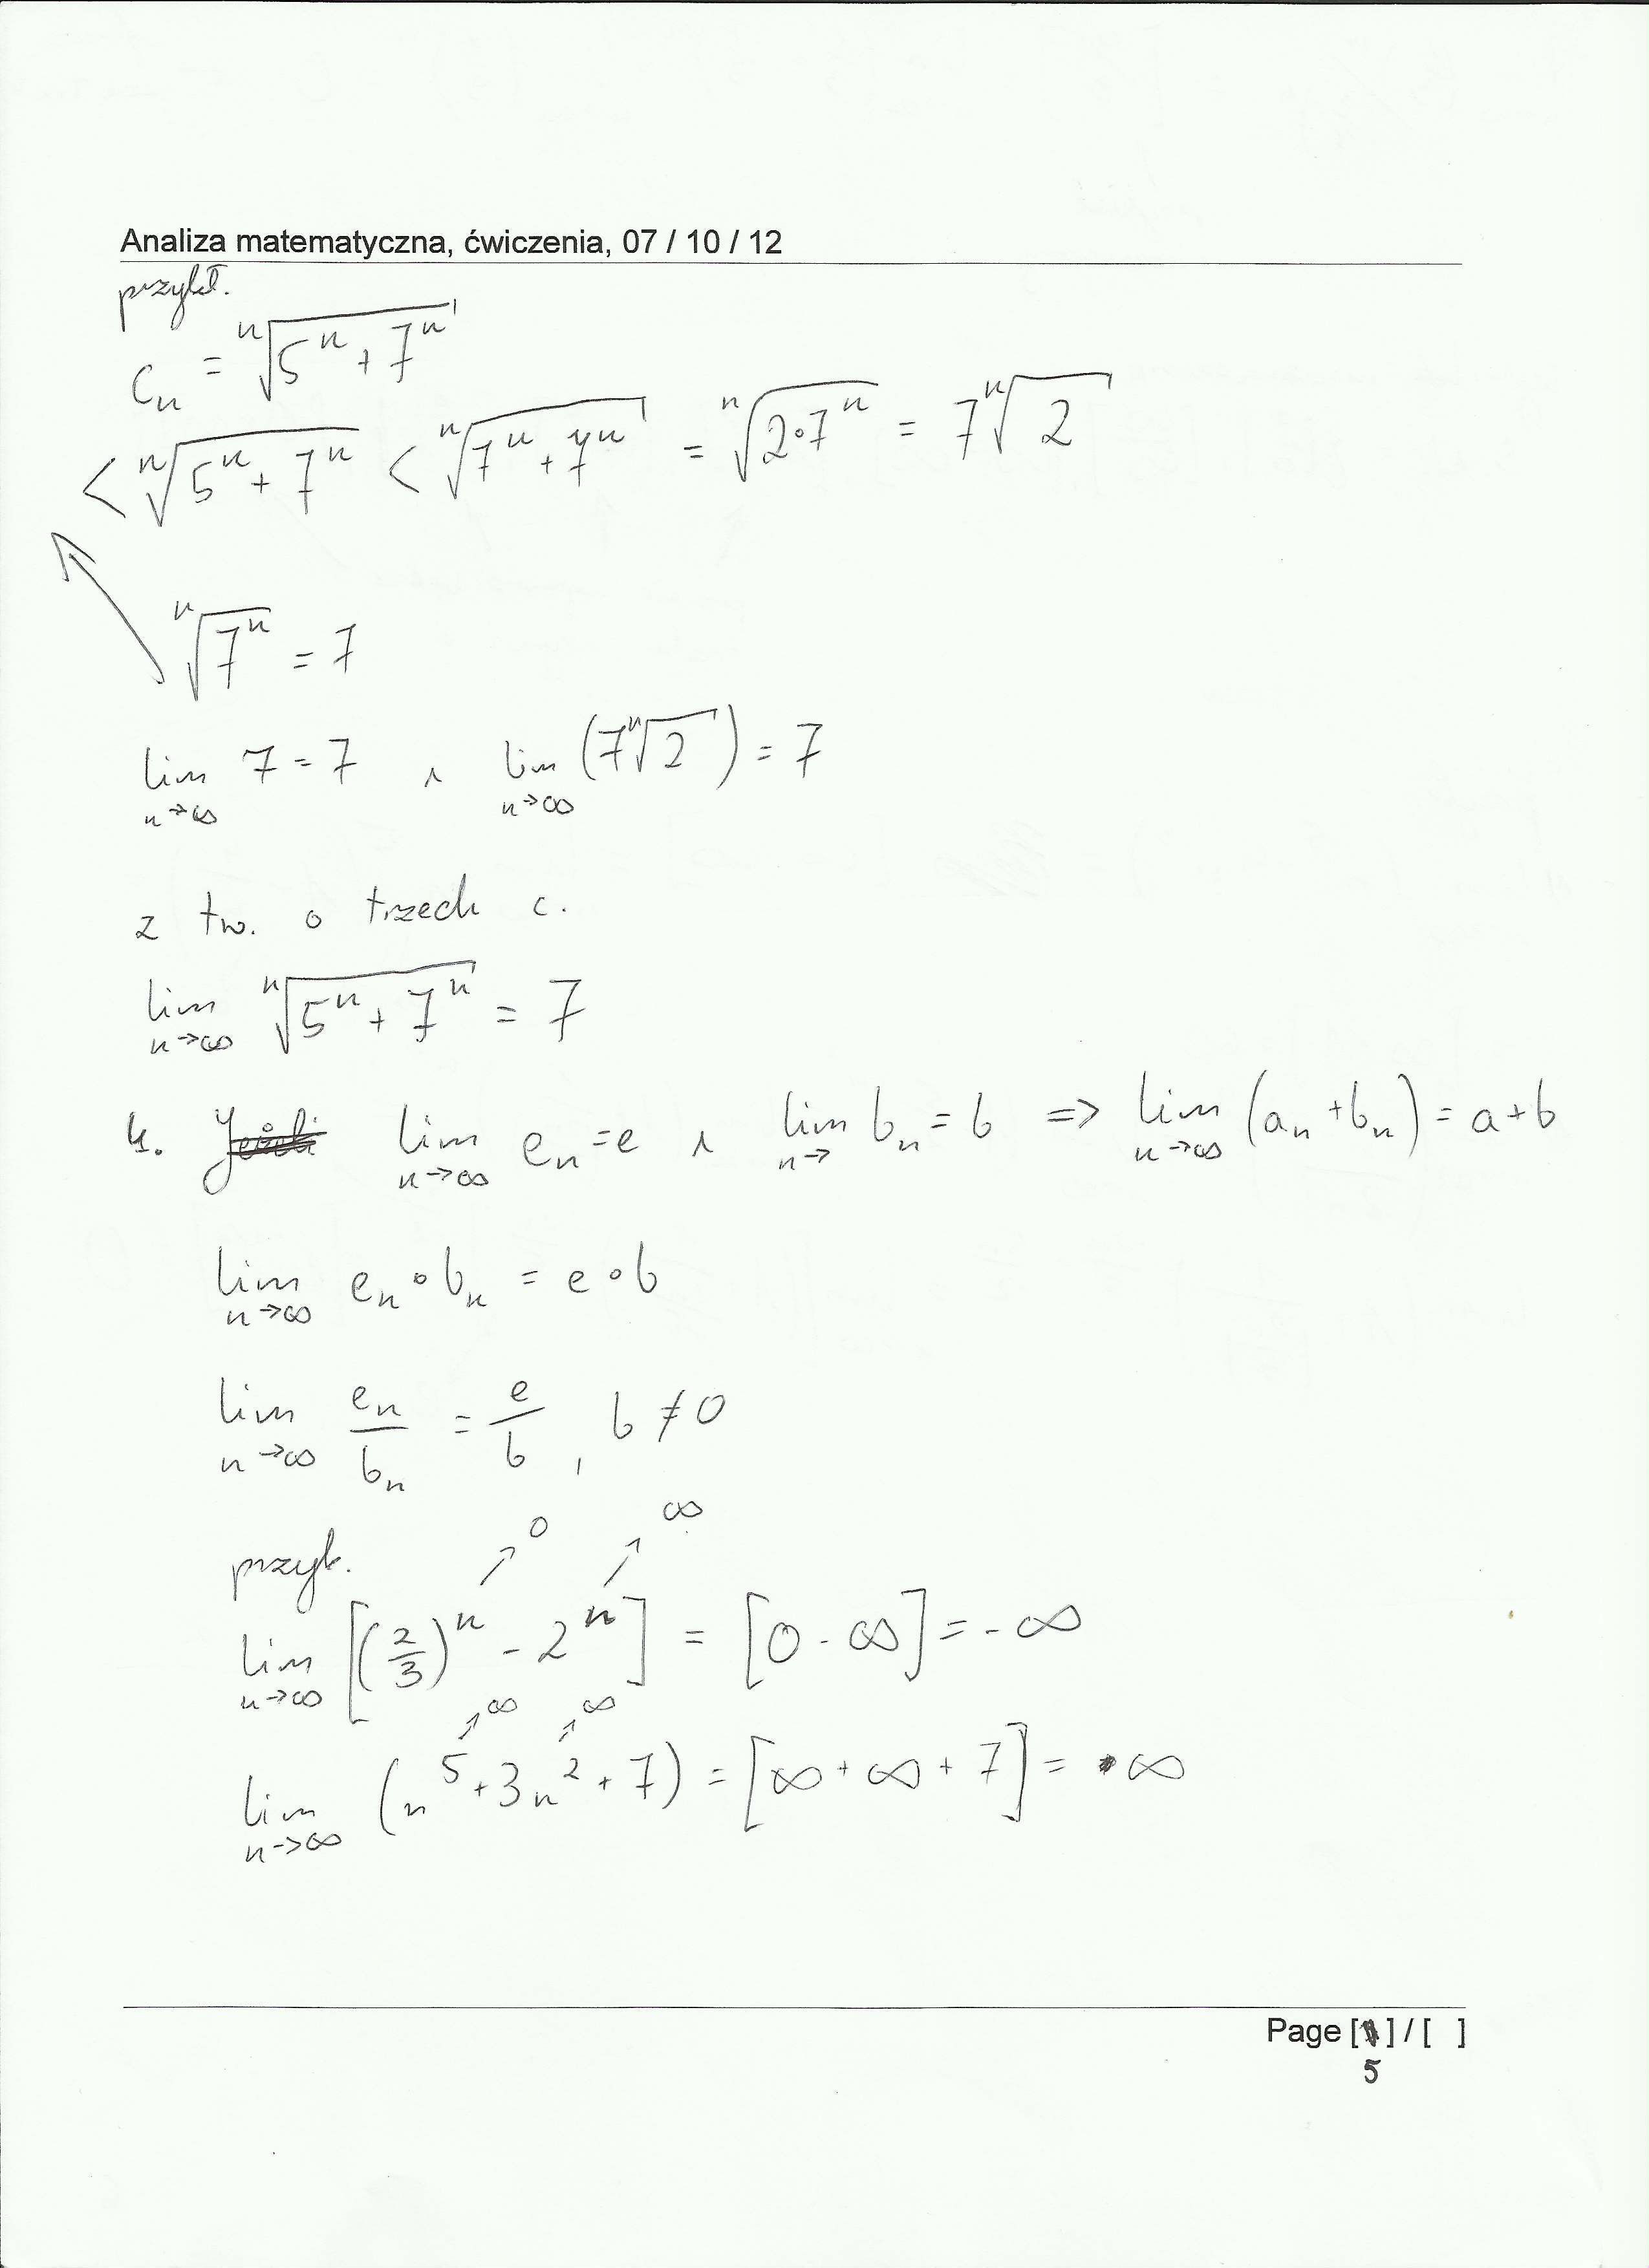 Analiza matematyczna, ćwiczenia, 07 / 10 / 12
przykł.
cₙ = ⁿ√(5ⁿ + 7ⁿ)
< ⁿ√(5ⁿ + 7ⁿ) < ⁿ√(7ⁿ + 7ⁿ) = ⁿ√(2·7ⁿ) = 7 ⁿ√2
ⁿ√(7ⁿ) = 7
lim n→∞ 7 = 7 ∧ lim n→∞ (7 ⁿ√2) = 7
z tw. o trzech c.
lim n→∞ ⁿ√(5ⁿ + 7ⁿ) = 7
4. Jeżeli lim n→∞ eₙ = e ∧ lim n→ bₙ = b => lim n→∞ (aₙ + bₙ) = a + b
lim n→∞ eₙ · bₙ = e · b
lim n→∞ eₙ/bₙ = e/b , b ≠ 0
przyk.
0 ∞
lim n→∞ [(2/3)ⁿ - 2ⁿ] = [0 - ∞] = - ∞
∞ ∞
lim n→∞ (n⁵ + 3n² + 7) = [∞ + ∞ + 7] = ∞
Page [ ] / [ ]
5